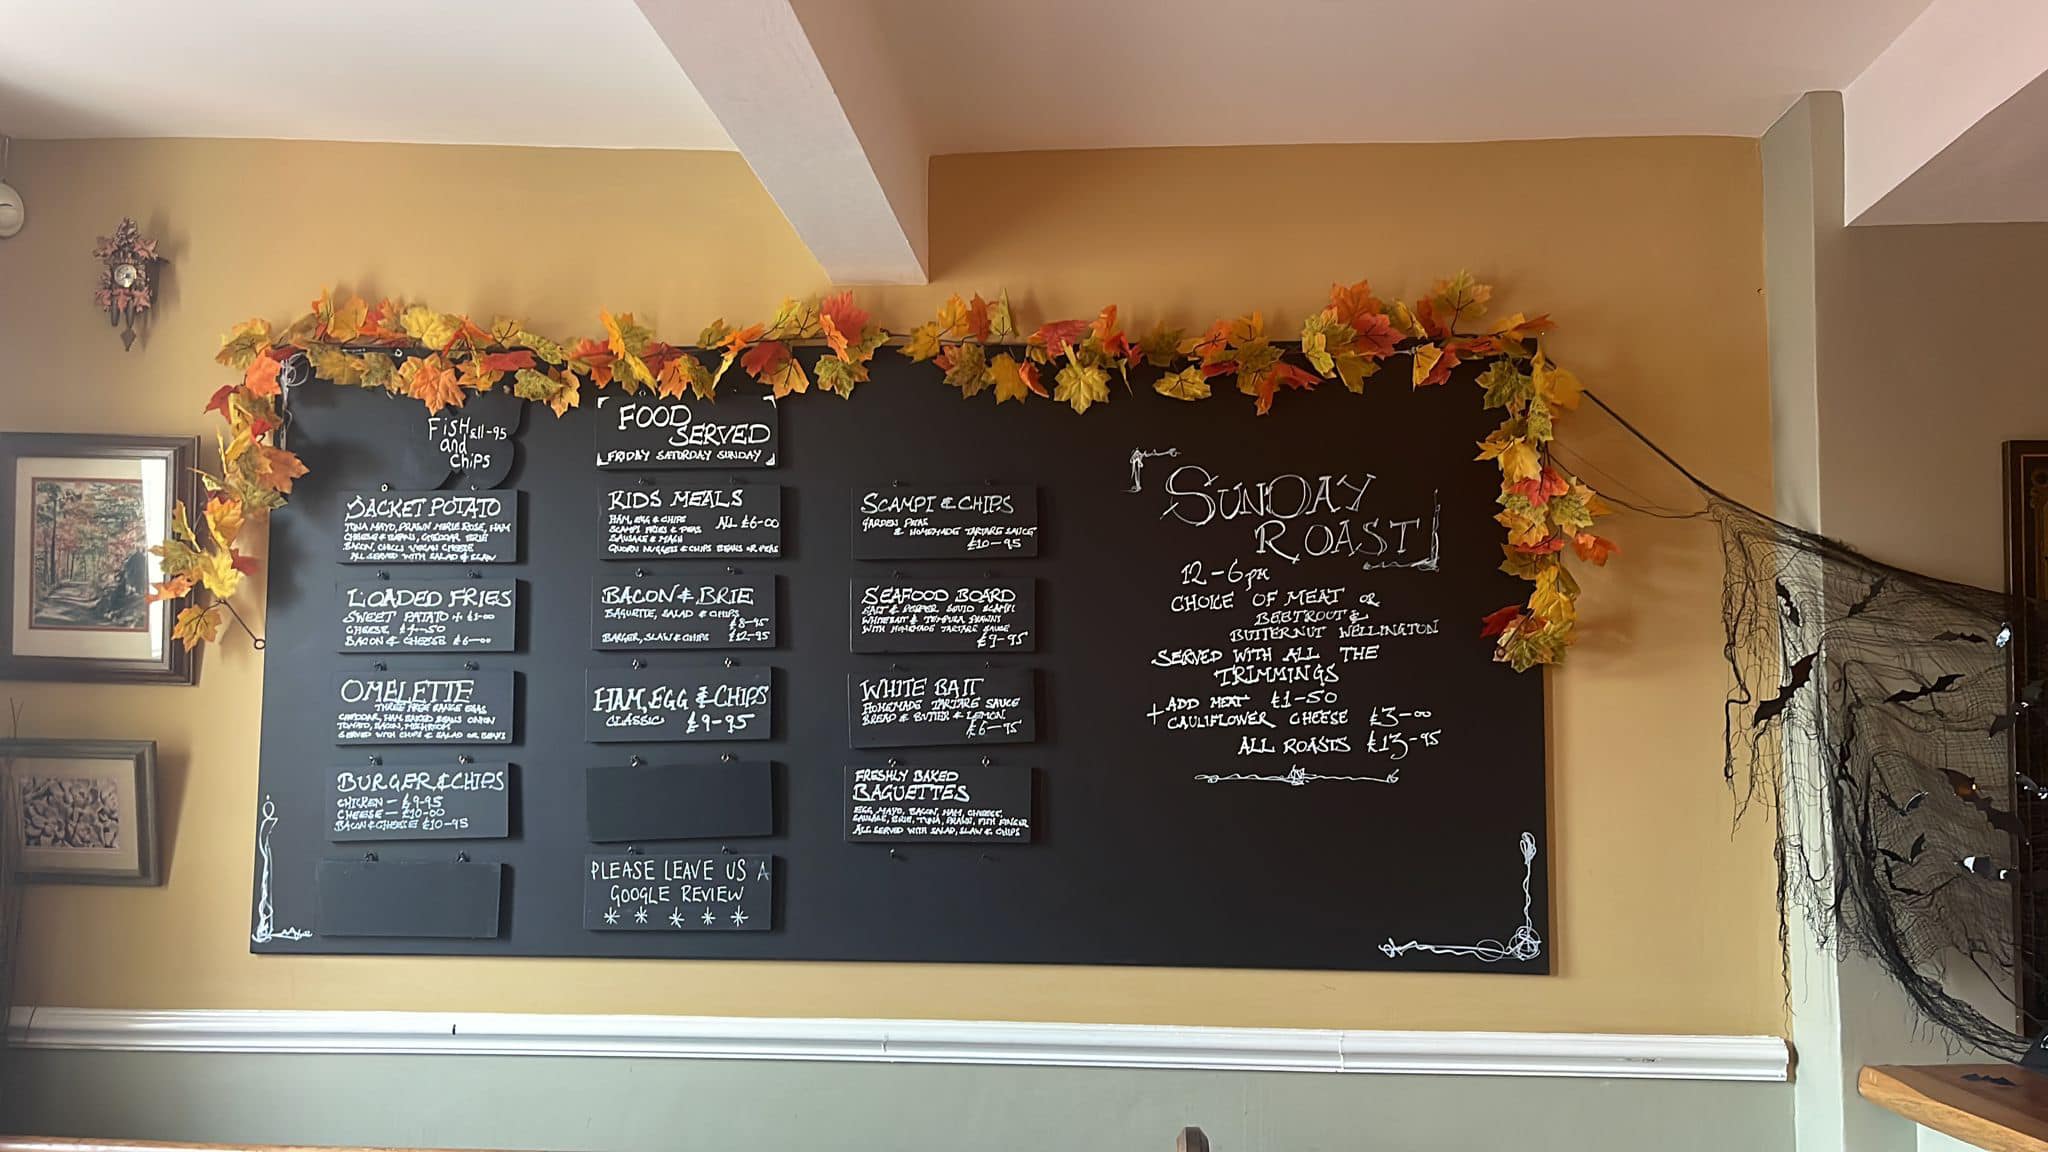 FiSH £11-95
and
CHiPS
JACKET POTATO
TUNA MAYO, PRAWN MARIE ROSE, HAM
CHEESE & BEANS, CHEDDAR, BRIE
BACON, CHILLI, VEGAN CHEESE
ALL SERVED WITH SALAD & SLAW
LOADED FRIES
SWEET POTATO + £1-00
CHEESE £4-50
BACON & CHEESE £6-00
OMELETTE
THREE FREE RANGE EGGS
CHEDDAR, HAM, BAKED BEANS, ONION
TOMATO, BACON, MUSHROOM
SERVED WITH CHIPS & SALAD OR BEANS
BURGER & CHIPS
CHICKEN - £9-95
CHEESE - £10-00
BACON & CHEESE £10-95
FOOD
SERVED
FRIDAY SATURDAY SUNDAY
KIDS MEALS
HAM, EGG & CHIPS ALL £6-00
SCAMPI, FRIES & PEAS
SAUSAGE & MASH
QUORN NUGGETS & CHIPS BEANS OR PEAS
BACON & BRIE
BAGUETTE, SALAD & CHIPS
£8-95
BURGER, SLAW & CHIPS £12-95
HAM, EGG & CHIPS
CLASSIC £9-95
PLEASE LEAVE US A
GOOGLE REVIEW
* * * * *
SCAMPI & CHIPS
GARDEN PEAS
& HOMEMADE TARTARE SAUCE
£10-95
SEAFOOD BOARD
SALT & PEPPER SQUID SCAMPI
WHITEBAIT & TEMPURA PRAWNS
WITH HOMEMADE TARTARE SAUCE
£9-95
WHITE BAIT
HOMEMADE TARTARE SAUCE
BREAD & BUTTER & LEMON
£6-95
FRESHLY BAKED
BAGUETTES
EGG MAYO, BACON, HAM, CHEESE,
SAUSAGE, BRIE, TUNA, PRAWN, FISH FINGER
ALL SERVED WITH SALAD, SLAW & CHIPS
SUNDAY
ROAST
12-6pm
CHOICE OF MEAT OR
BEETROOT &
BUTTERNUT WELLINGTON
SERVED WITH ALL THE
TRIMMINGS
+ ADD MEAT £1-50
CAULIFLOWER CHEESE £3-00
ALL ROASTS £13-95